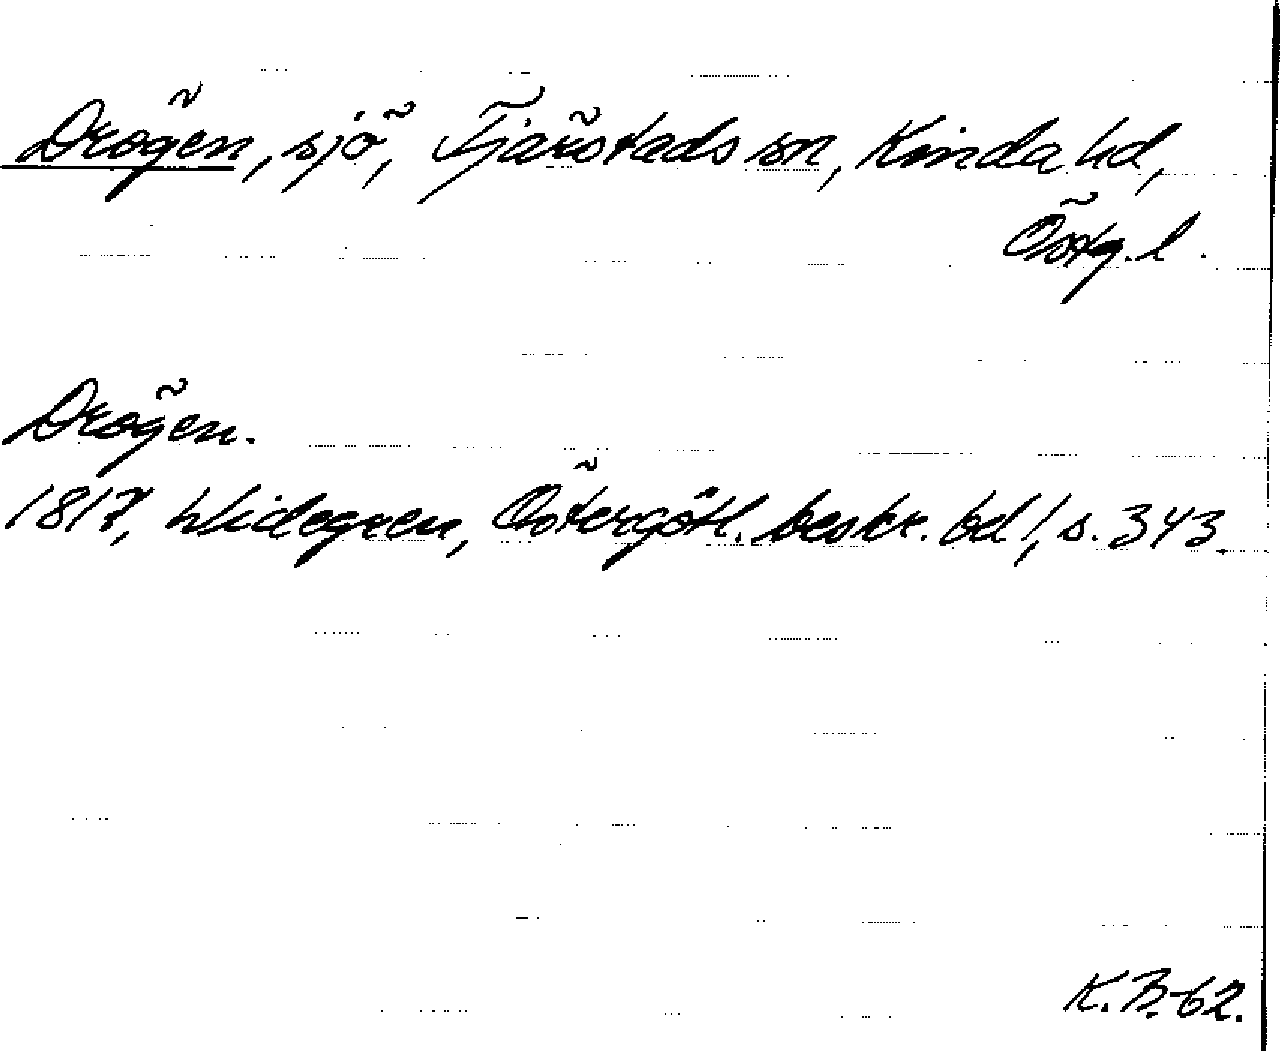 Drögen, sjö, Tjärstads sn, Kinda hd,
Östg. l.
Drögen.
1817, Widegren, Östergötl. beskr. bd 1, s. 343
K. B. -62.